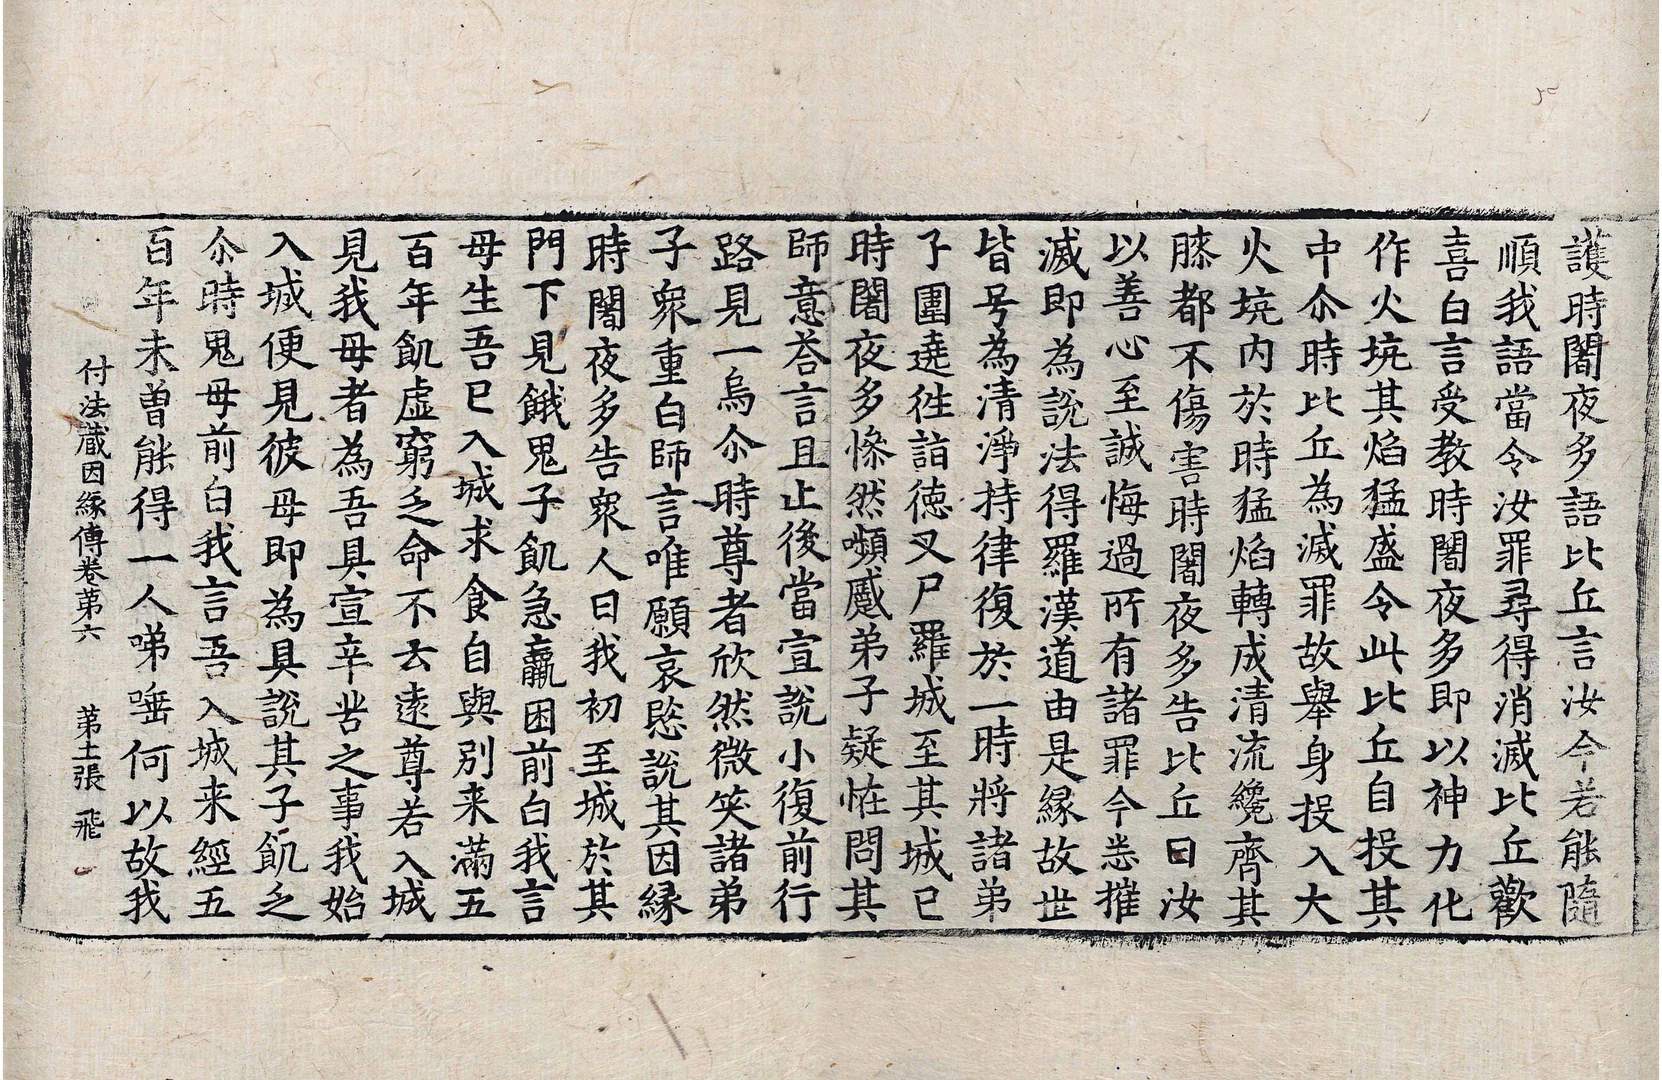 護時闍夜多語比丘言汝今若能隨
順我語當令汝罪尋得消滅比丘歡
喜白言受教時闍夜多即以神力化
作火坑其焰猛盛令此比丘自投其
中尒時比丘為滅罪故舉身投入大
火坑内於時猛焰轉成清流纔齊其
膝都不傷害時闍夜多告比丘曰汝
以善心至誠悔過所有諸罪今悉摧
滅即為說法得羅漢道由是縁故世
皆号為清淨持律復於一時將諸弟
子圍遶徃詣德叉尸羅城至其城已
時闍夜多慘然嚬蹙弟子疑恠問其
師意荅言且止後當宣說小復前行
路見一烏尒時尊者欣然微笑諸弟
子衆重白師言唯願哀愍說其因縁
時闍夜多告衆人曰我初至城於其
門下見餓鬼子飢急羸困前白我言
母生吾已入城求食自與別来滿五
百年飢虛窮乏命不云遠尊若入城
見我母者為吾具宣辛苦之事我始
入城便見彼母即為具說其子飢乏
尒時鬼母前白我言吾入城来經五
百年未曾能得一人㖒唾何以故我
付法藏因緣傳卷第六 第十一張 飛